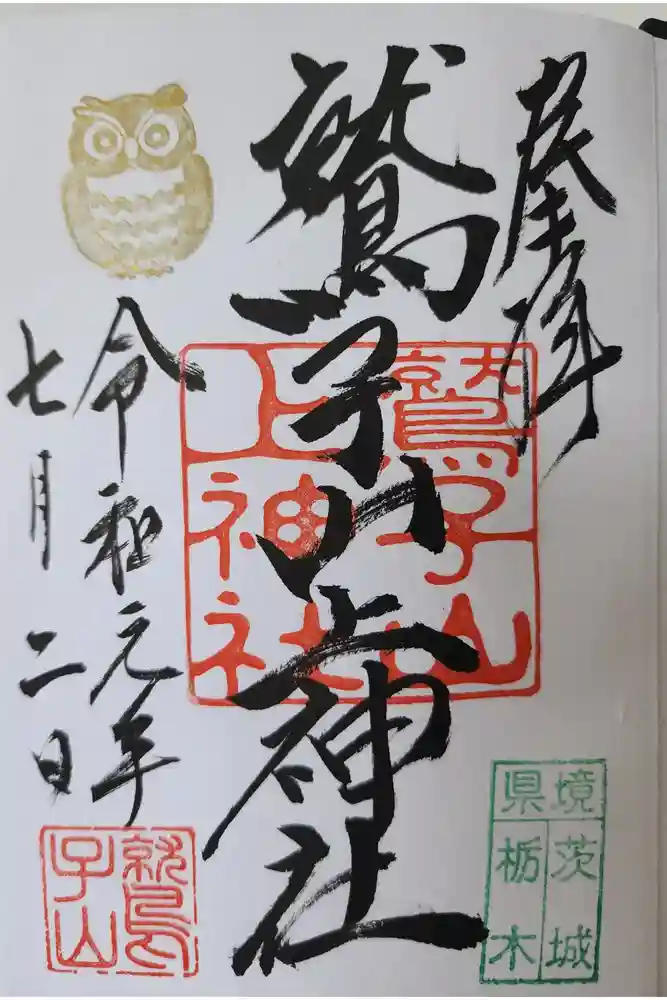 鷲子山上神社
令和元年
七月二日
鷲子山
上神社
鷲
子山
県境
茨城
栃木